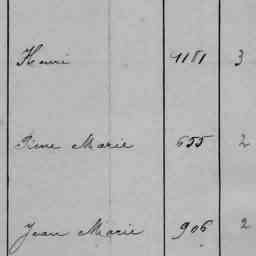 Henri 1181 3
Pierre Marie 655 2
Jean Marie 906 2